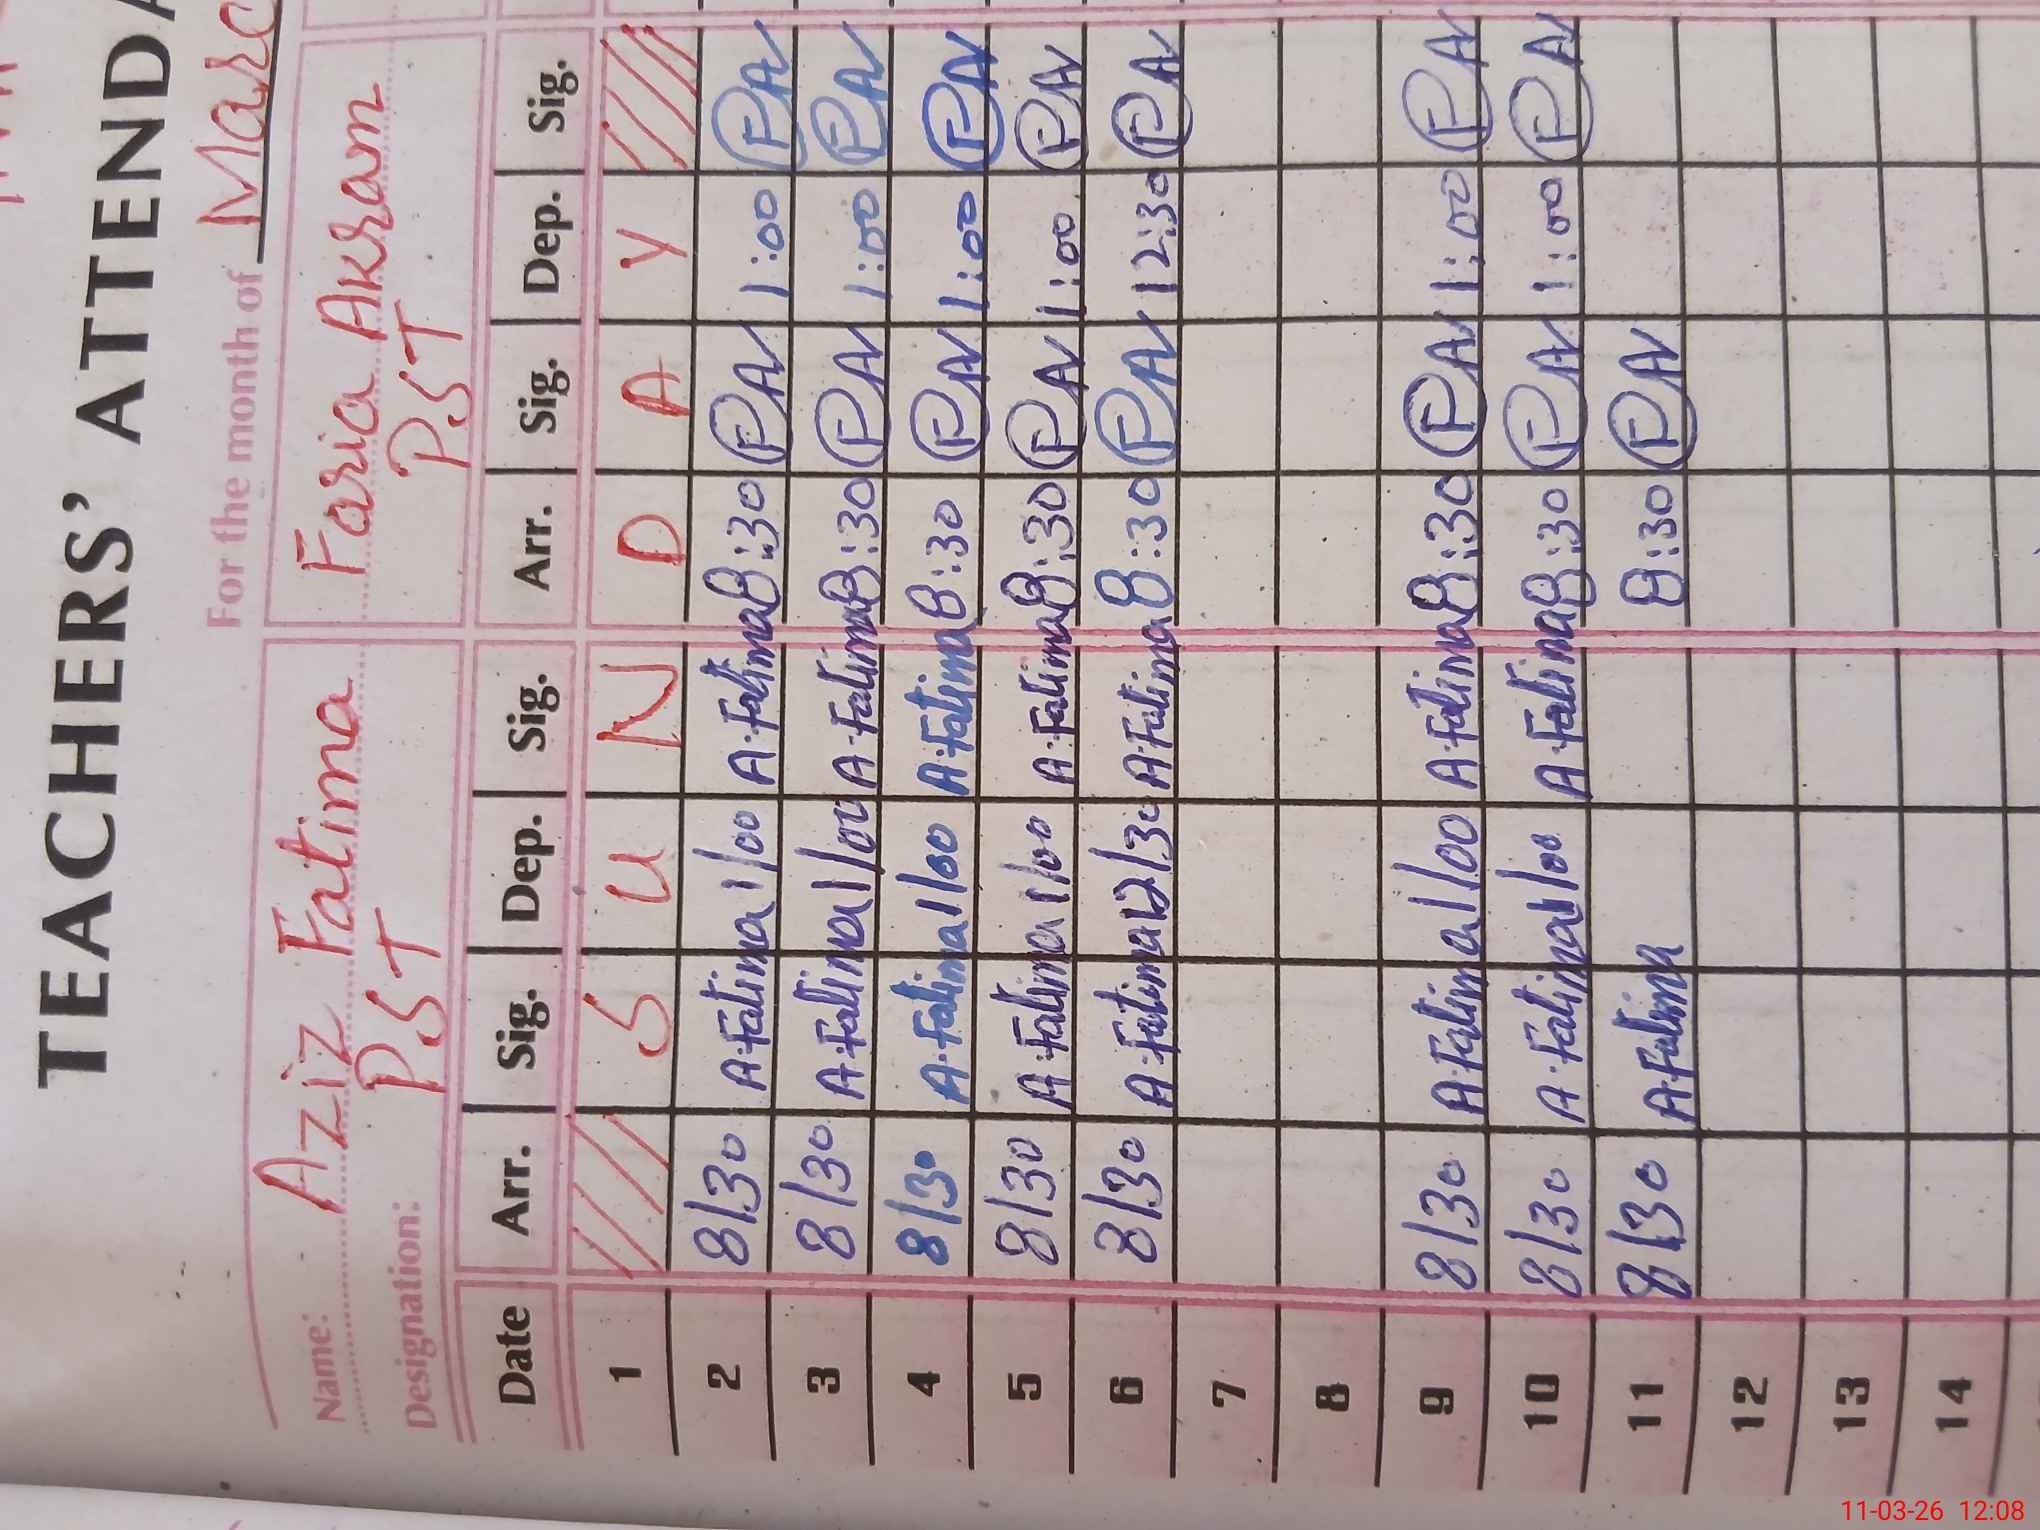 TEACHERS' ATTENDA
For the month of Marc
Name: Aziz Fatima Faria Akram
Designation: PST PST
Date Arr. Sig. Dep. Sig. Arr. Sig. Dep. Sig.
1 S U N D A Y
2 8/30 A.Fatima 1/00 A.Fatima 8:30 (F)A 1:00 (F)A
3 8/30 A.Fatima 1/00 A.Fatima 8:30 (F)A 1:00 (F)A
4 8/30 A.Fatima 1/00 A.Fatima 8:30 (F)A 1:00 (F)A
5 8/30 A.Fatima 1/00 A.Fatima 8:30 (F)A 1:00 (F)A
6 8/30 A.Fatima 12/30 A.Fatima 8:30 (F)A 12:30 (F)A
7
8
9 8/30 A.Fatima 1/00 A.Fatima 8:30 (F)A 1:00 (F)A
10 8/30 A.Fatima 1/00 A.Fatima 8:30 (F)A 1:00 (F)A
11 8/30 A.Fatima 8:30 (F)A
12
13
14
11-03-26 12:08